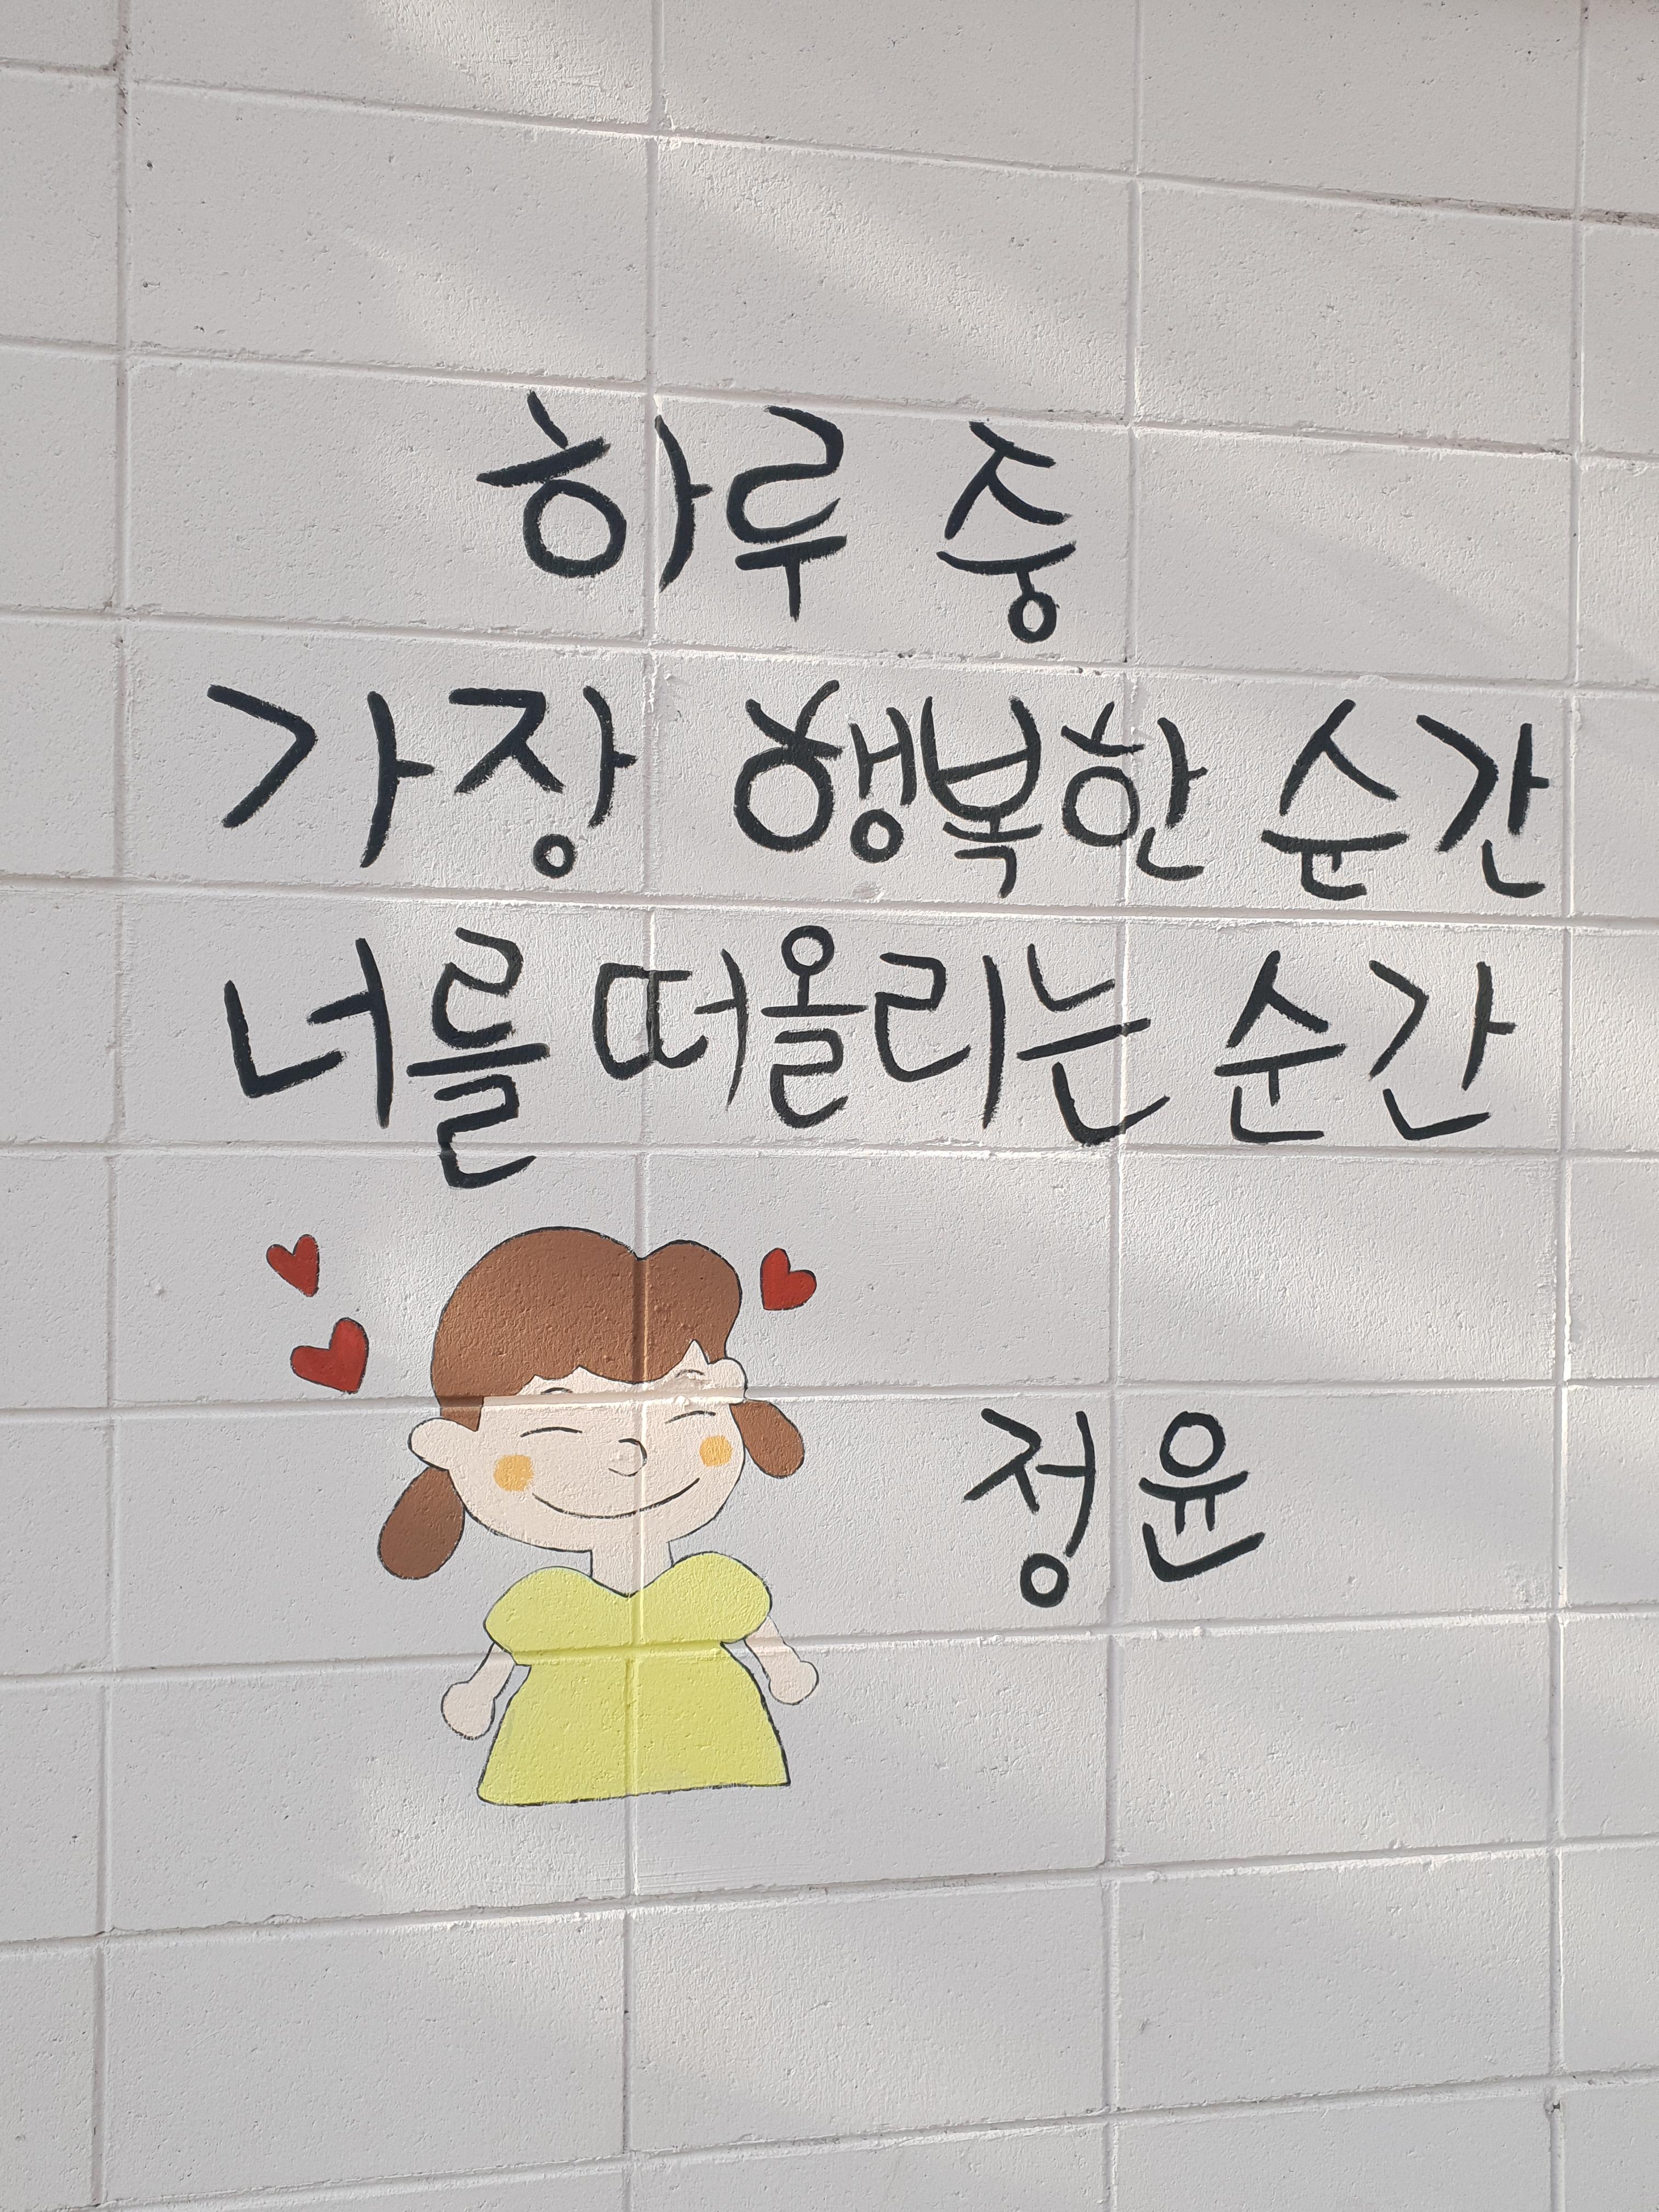 하루 중
가장 행복한 순간
너를 떠올리는 순간
정윤